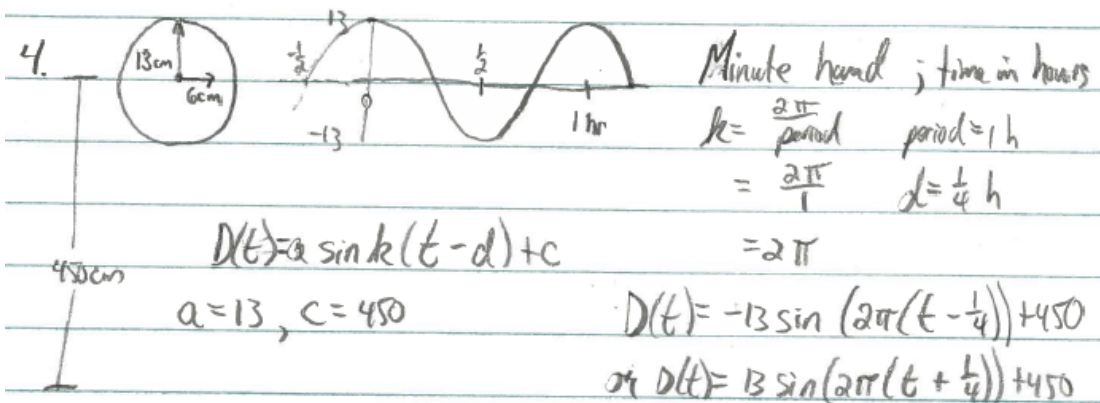 4.
13cm
6cm
13
-1/2
0
1/2
1 hr
-13
Minute hand ; time in hours
k = 2π/period period = 1 h
= 2π/1 d = 1/4 h
= 2π
D(t)=a sin k(t-d)+c
450cm
a = 13, c = 450
D(t) = -13 sin (2π(t - 1/4)) + 450
or D(t) = 13 sin(2π(t + 1/4)) + 450